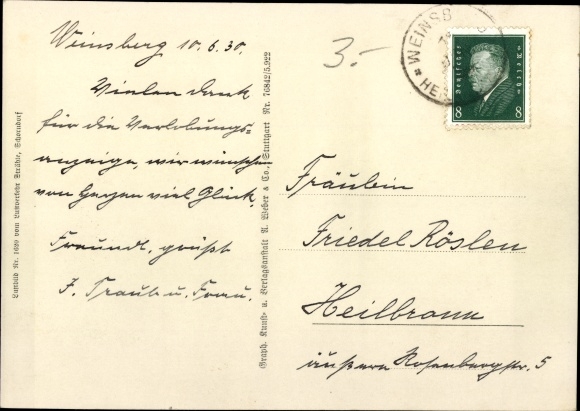 Weinsberg 10.6.30.
Vielen Dank
für die Verlobungs=
anzeige, wir wünschen
von Herzen viel Glück.
Freundl. grüßt
F. Traub u. Frau.
3.-
WEINSB
HE
Deutsches Reich
8 8
Fräulein
Friedel Röslen
Heilbronn
äußere Rosenbergstr. 5
Graph. Kunst- u. Verlagsanstalt A. Weber & Co., Stuttgart Nr. 76842/5.922
Luftbild Nr. 1669 vom Luftverkehr Strähle, Schorndorf